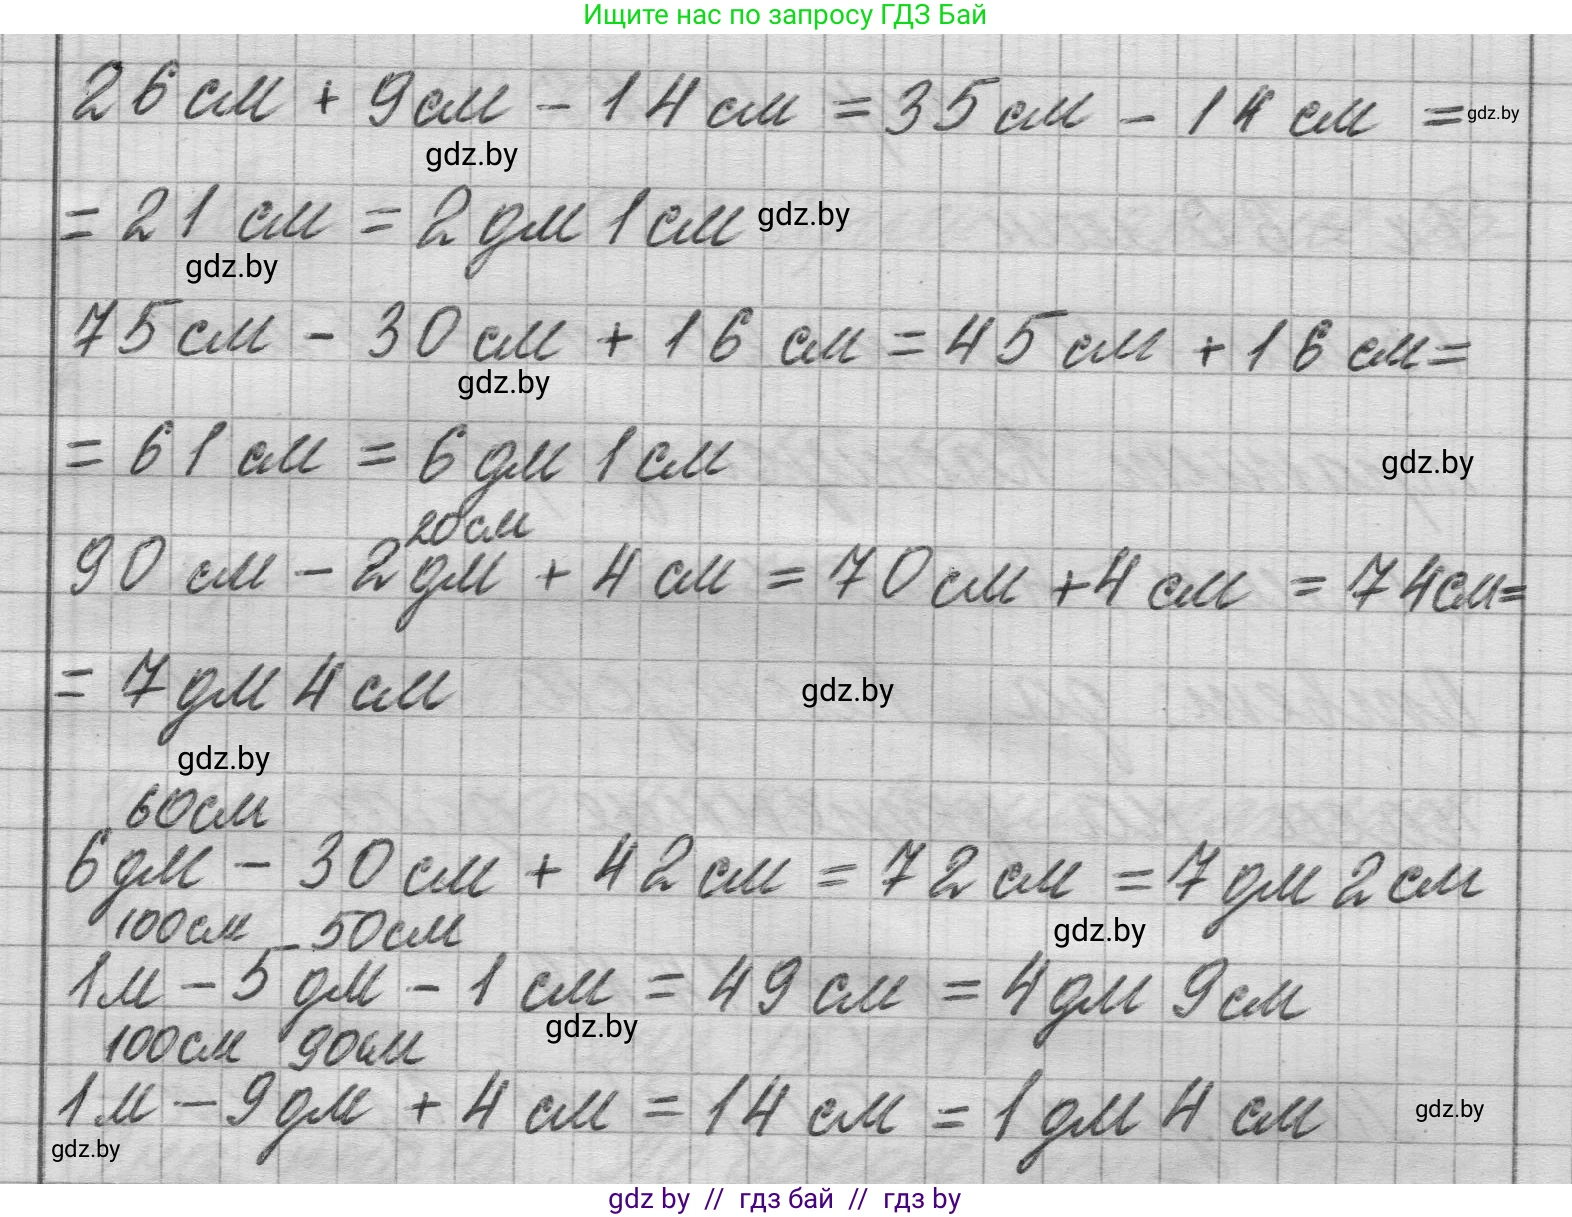 Ищите нас по запросу ГДЗ Бай
26 см + 9 см - 14 см = 35 см - 14 см = gdz.by
gdz.by
= 21 см = 2 дм 1 см gdz.by
gdz.by
75 см - 30 см + 16 см = 45 см + 16 см =
gdz.by
= 61 см = 6 дм 1 см gdz.by
20 см
90 см - 2 дм + 4 см = 70 см + 4 см = 74 см =
= 7 дм 4 см gdz.by
gdz.by
60 см
6 дм - 30 см + 42 см = 72 см = 7 дм 2 см
100 см - 50 см gdz.by
1 м - 5 дм - 1 см = 49 см = 4 дм 9 см
gdz.by
100 см 90 см
1 м - 9 дм + 4 см = 14 см = 1 дм 4 см gdz.by
gdz.by
gdz by // гдз бай // гдз by